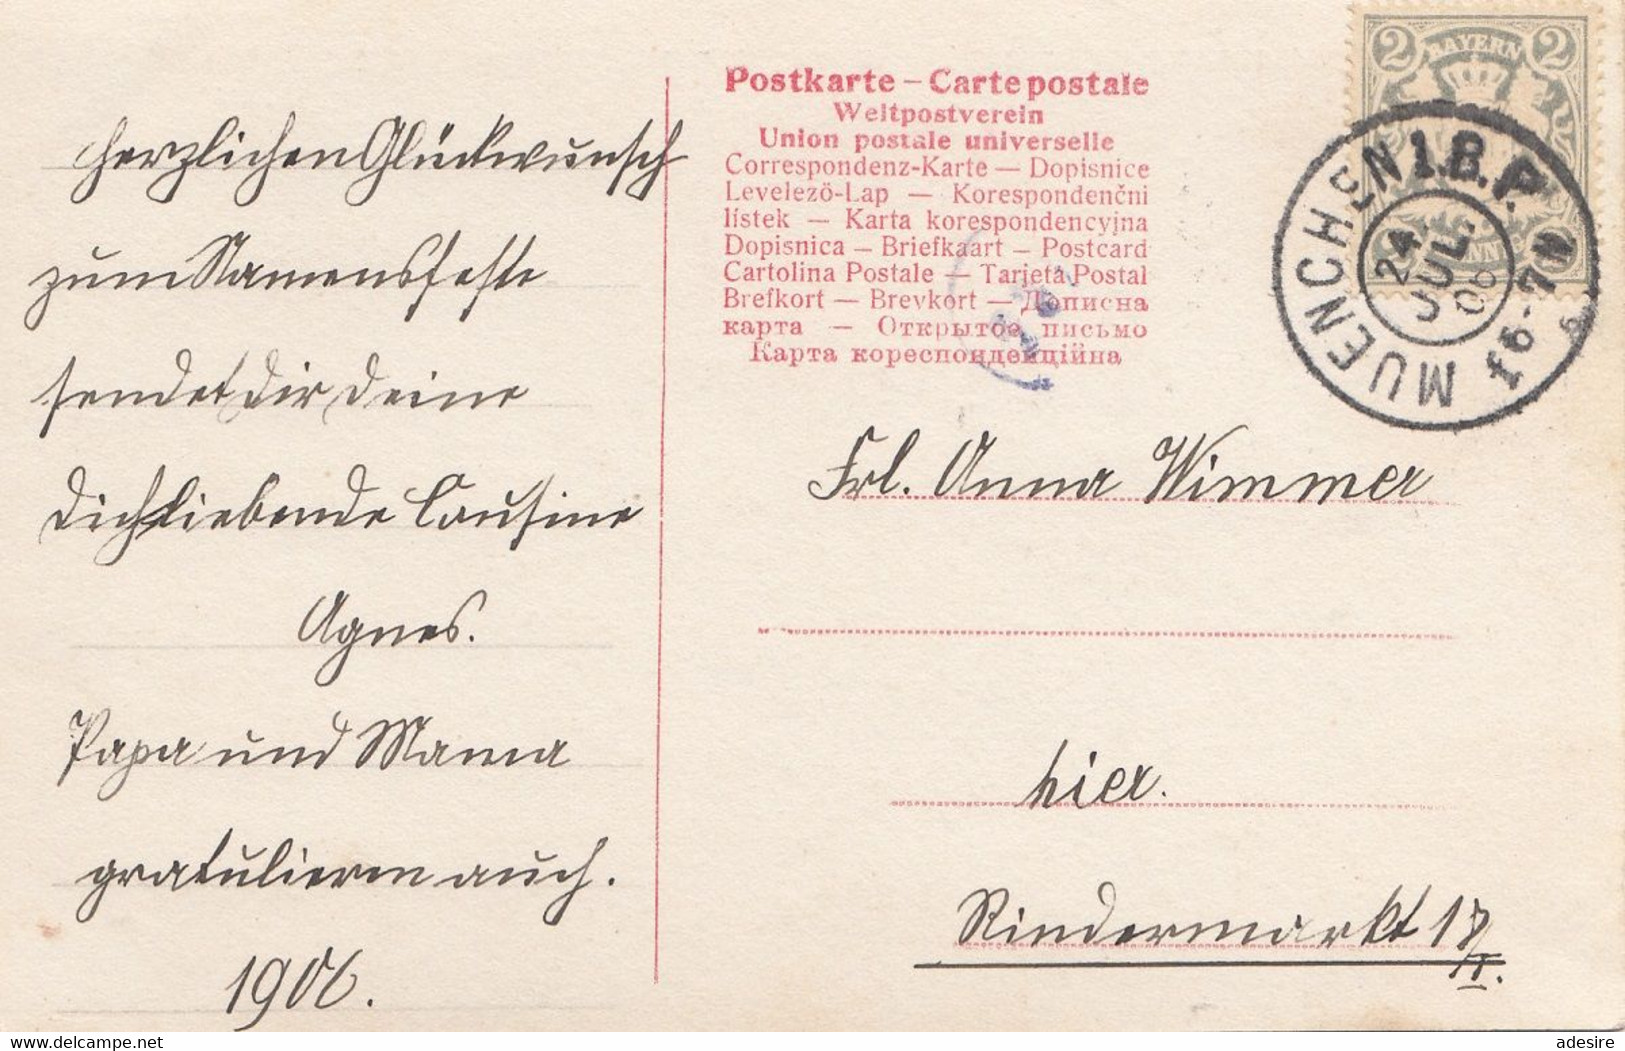 herzlichen Glückwunsch
zum Namensfeste
sendet Dir Deine
Dich liebende Cousine
Agnes.
Papa und Mama
gratulieren auch.
1906.
Postkarte – Carte postale
Weltpostverein
Union postale universelle
Correspondenz-Karte — Dopisnice
Levelezö-Lap — Korespondenčni
lístek — Karta korespondencyjna
Dopisnica — Briefkaart — Postcard
Cartolina Postale — Tarjeta Postal
Brefkort — Brevkort — Дописна
карта — Открытое письмо
Карта кореспонденційна
2 BAYERN 2
MUENCHEN I.B.P.
24
JUL.
06
6-7 N
Frl. Anna Wimmer
hier.
Rindermarkt 17/I.
delcampe.net
adesire